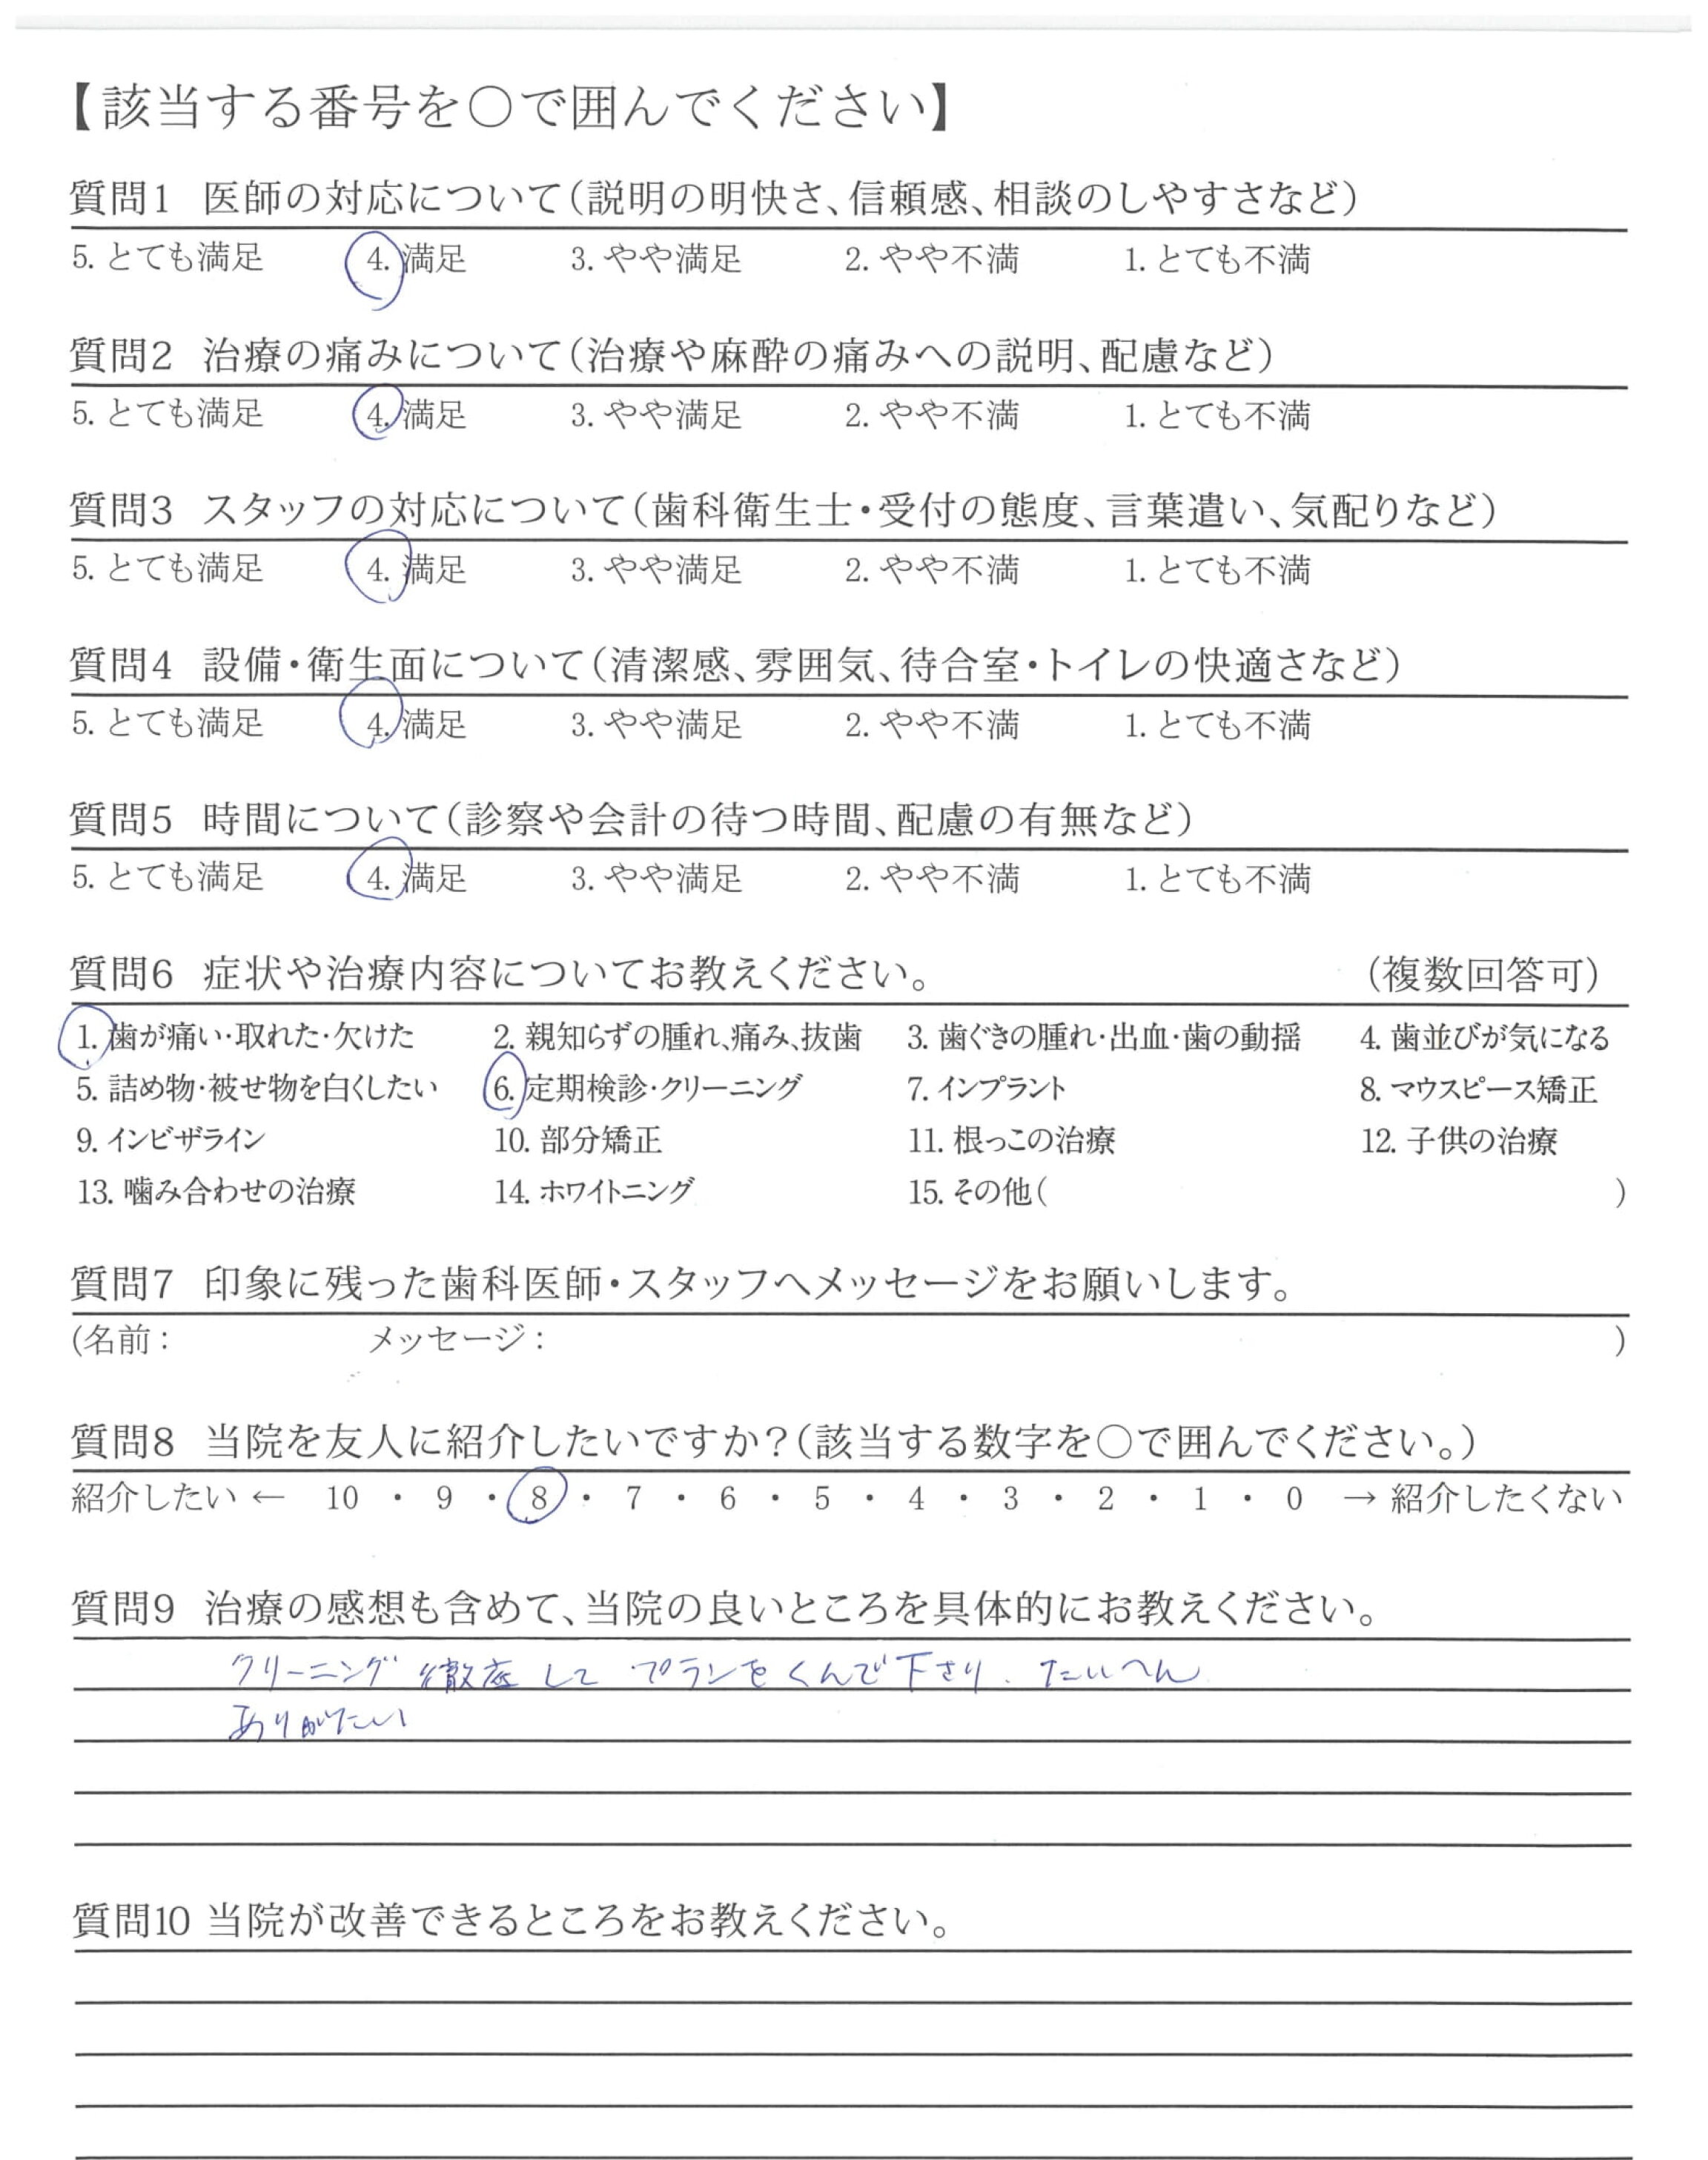 【該当する番号を○で囲んでください】
質問1 医師の対応について(説明の明快さ、信頼感、相談のしやすさなど)
5. とても満足 4. 満足 3. やや満足 2. やや不満 1. とても不満
質問2 治療の痛みについて(治療や麻酔の痛みへの説明、配慮など)
5. とても満足 4. 満足 3. やや満足 2. やや不満 1. とても不満
質問3 スタッフの対応について(歯科衛生士・受付の態度、言葉遣い、気配りなど)
5. とても満足 4. 満足 3. やや満足 2. やや不満 1. とても不満
質問4 設備・衛生面について(清潔感、雰囲気、待合室・トイレの快適さなど)
5. とても満足 4. 満足 3. やや満足 2. やや不満 1. とても不満
質問5 時間について(診察や会計の待つ時間、配慮の有無など)
5. とても満足 4. 満足 3. やや満足 2. やや不満 1. とても不満
質問6 症状や治療内容についてお教えください。 (複数回答可)
1. 歯が痛い・取れた・欠けた 2. 親知らずの腫れ、痛み、抜歯 3. 歯ぐきの腫れ・出血・歯の動揺 4. 歯並びが気になる
5. 詰め物・被せ物を白くしたい 6. 定期検診・クリーニング 7. インプラント 8. マウスピース矯正
9. インビザライン 10. 部分矯正 11. 根っこの治療 12. 子供の治療
13. 噛み合わせの治療 14. ホワイトニング 15. その他( )
質問7 印象に残った歯科医師・スタッフへメッセージをお願いします。
(名前: メッセージ: )
質問8 当院を友人に紹介したいですか?(該当する数字を○で囲んでください。)
紹介したい ← 10 ・ 9 ・ 8 ・ 7 ・ 6 ・ 5 ・ 4 ・ 3 ・ 2 ・ 1 ・ 0 → 紹介したくない
質問9 治療の感想も含めて、当院の良いところを具体的にお教えください。
クリーニング 徹底して プランをくんで下さり、たいへん
ありがたい
質問10 当院が改善できるところをお教えください。